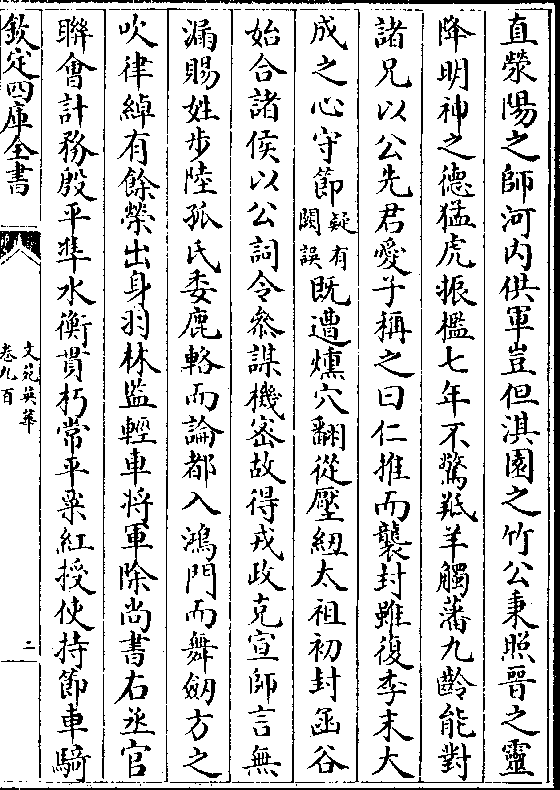 直滎陽之師河内供軍豈但淇園之竹公秉照晉之靈
降明神之德猛虎振檻七年不驚羝羊觸藩九齡能對
諸兄以公先君愛子稱之曰仁推而襲封雖復李末大
成之心守節疑有闕誤既遭燻穴翻從壓紐太祖初封函谷
始合諸侯以公詞令叅謀機宻故得戎政克宣師言無
漏賜姓步陸孤氏委鹿輅而論都入鴻門而舞劒方之
吹律綽有餘榮出身羽林監輕車將軍除尚書右丞官
聯會計務殷平凖水衡貫朽常平粟紅授使持節車騎
欽定四庫全書
文苑英華
卷九百
二